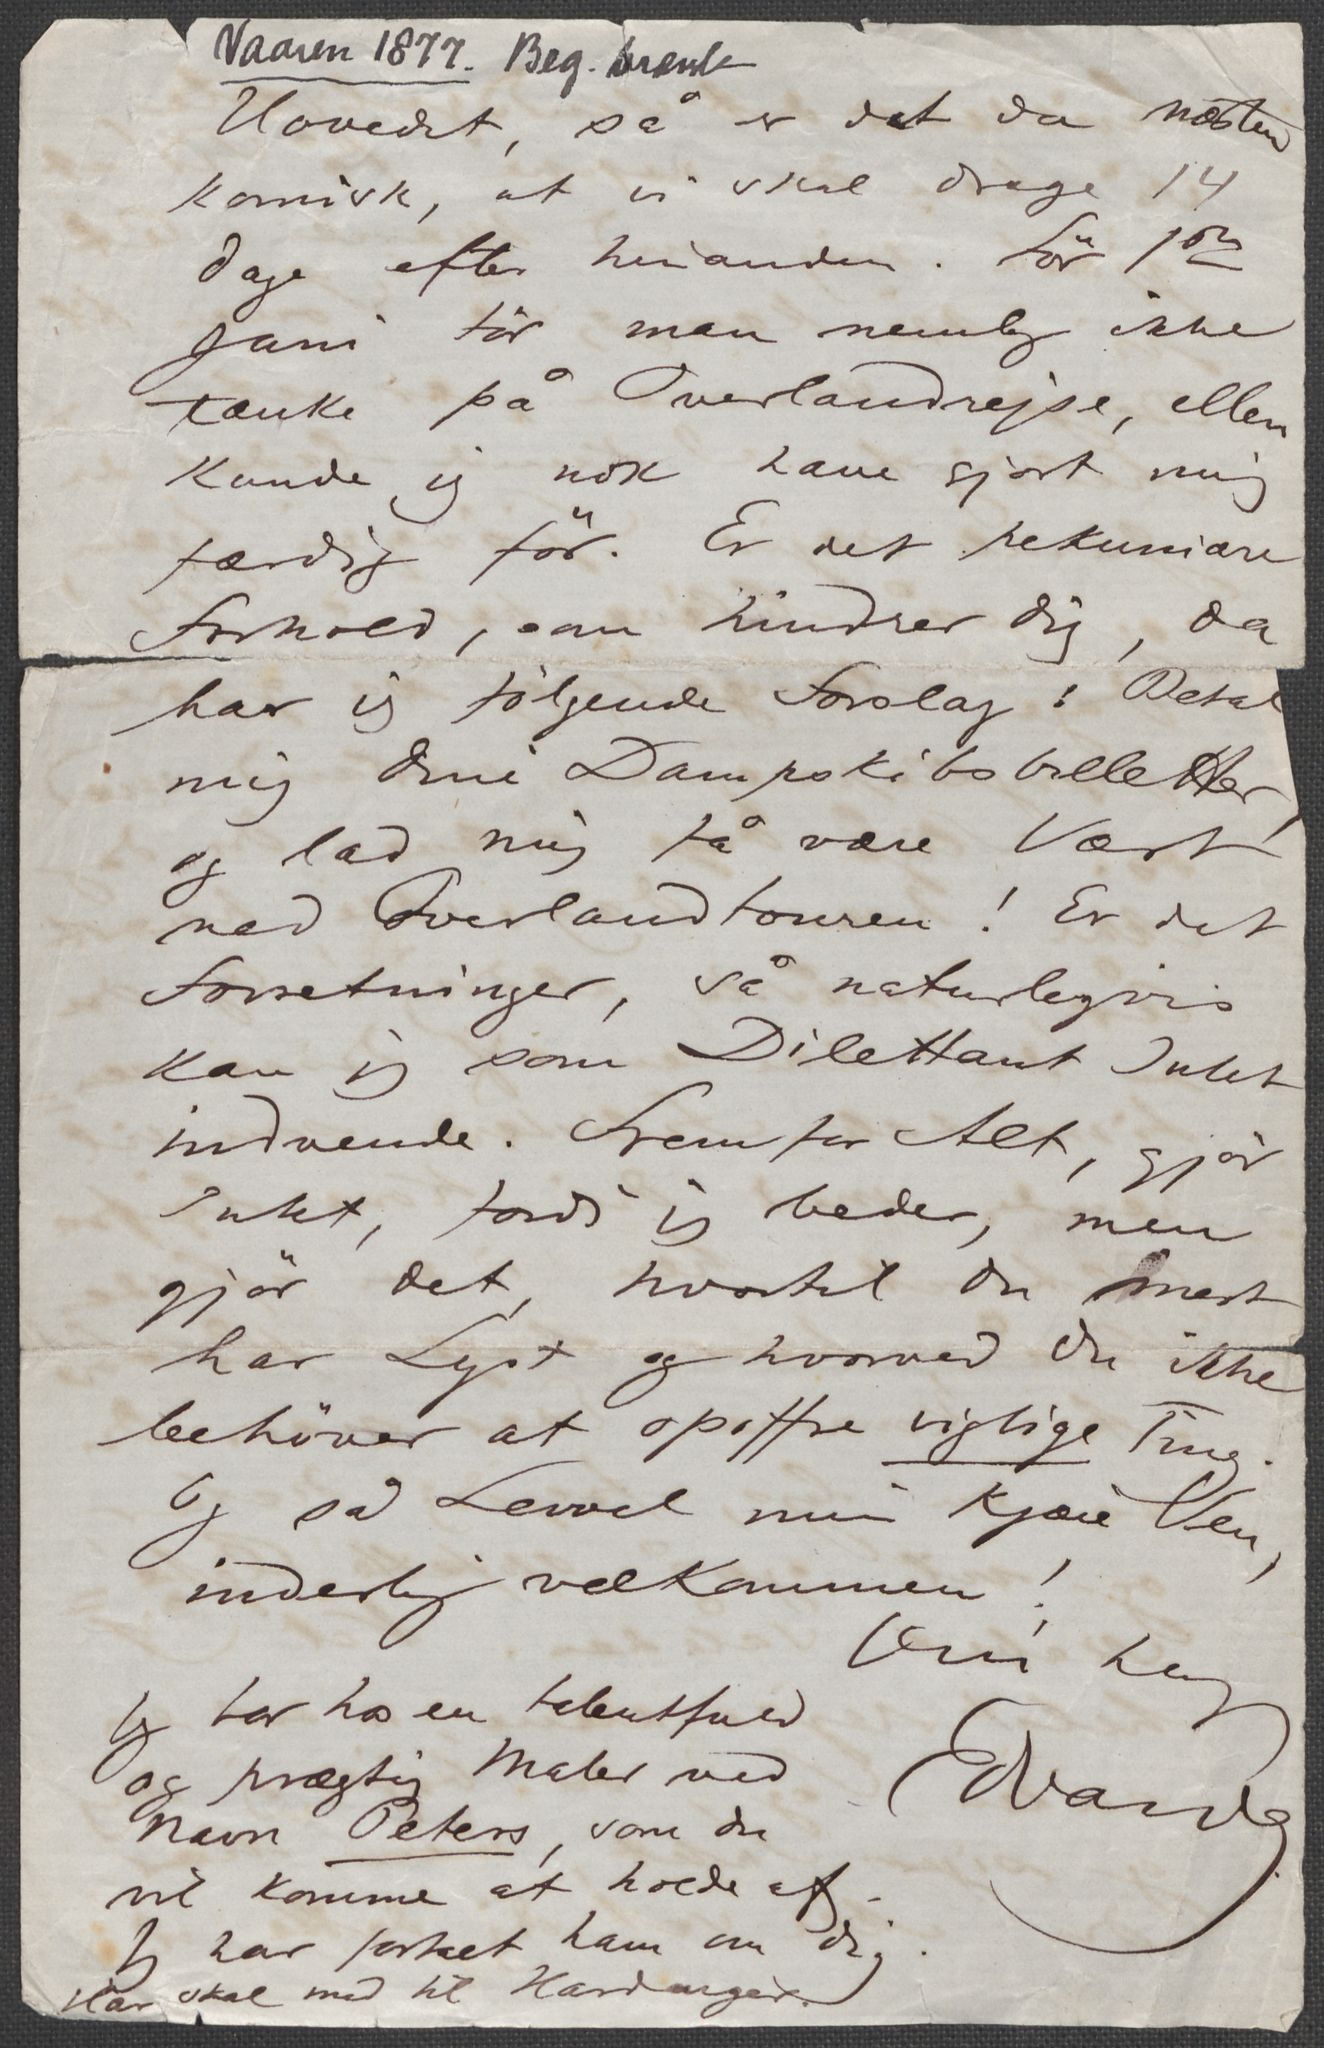 Vaaren 1877. Beg. brændt
Hovedet, så er det da næsten
komisk, at vi skal drage 14
Dage efter hinanden. Før 1ste
Juni tör man nemlig ikke
tænke på Overlandrejse, ellers
kunde jeg nok have gjort mig
færdig för. Er det pekuniære
Forhold, som hindrer dig, da
har jeg fölgende Forslag: Betal
mig dine Dampskibsbilletter,
og lad mig få være Vært
ved Overlandtouren! Er det
Forretninger, så naturligvis
kan jeg som Dilettant Intet
indvende. Fremfor Alt, gjör
Intet, fordi jeg beder, men
gjör det, hvortil du mest
har Lyst og hvorved du ikke
behöver at opoffre vigtige Ting.
Og så Levvel min kjære Ven,
inderlig velkommen!
Din heng
Edvard G
Jeg har hos en talentfuld
og prægtig Maler ved
Navn Peters, som du
vil komme at holde af.
Jeg har fortalt ham om dig.
Han skal med til Hardanger.